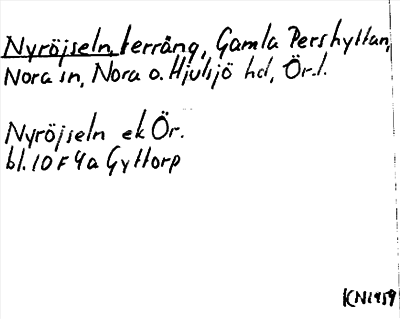 Nyröjseln, terräng, Gamla Pershyttan,
Nora sn, Nora o. Hjulsjö hd, Ör.l.
Nyröjseln ek Ör.
bl. 10 F 4a Gyttorp
KN1959